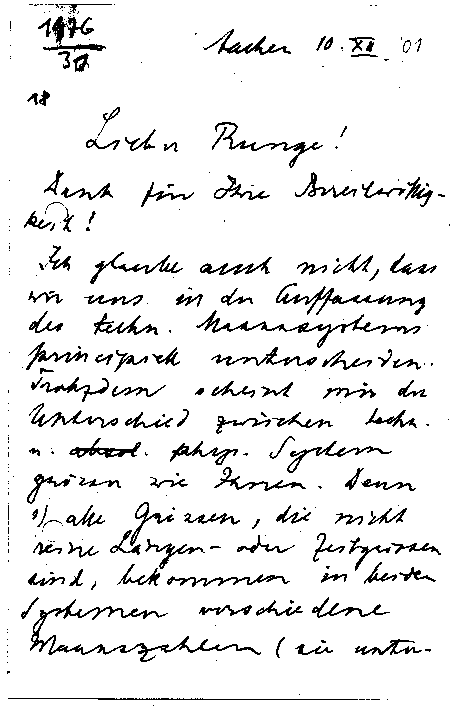 1976
37
Aachen 10. XII. 01
18
Lieber Runge!
Dank für Ihre Bereitwillig-
keit!
Ich glaube auch nicht, dass
wir uns in der Auffassung
des techn. Maasssystems
principiell unterscheiden.
Trotzdem scheint mir der
Unterschied zwischen techn.
u. absol. phys. System
grösser wie Ihnen. Denn
1) alle Grössen, die nicht
reine Längen- oder Zeitgrössen
sind, bekommen in beiden
Systemen verschiedene
Maasszahlen (sie unter-